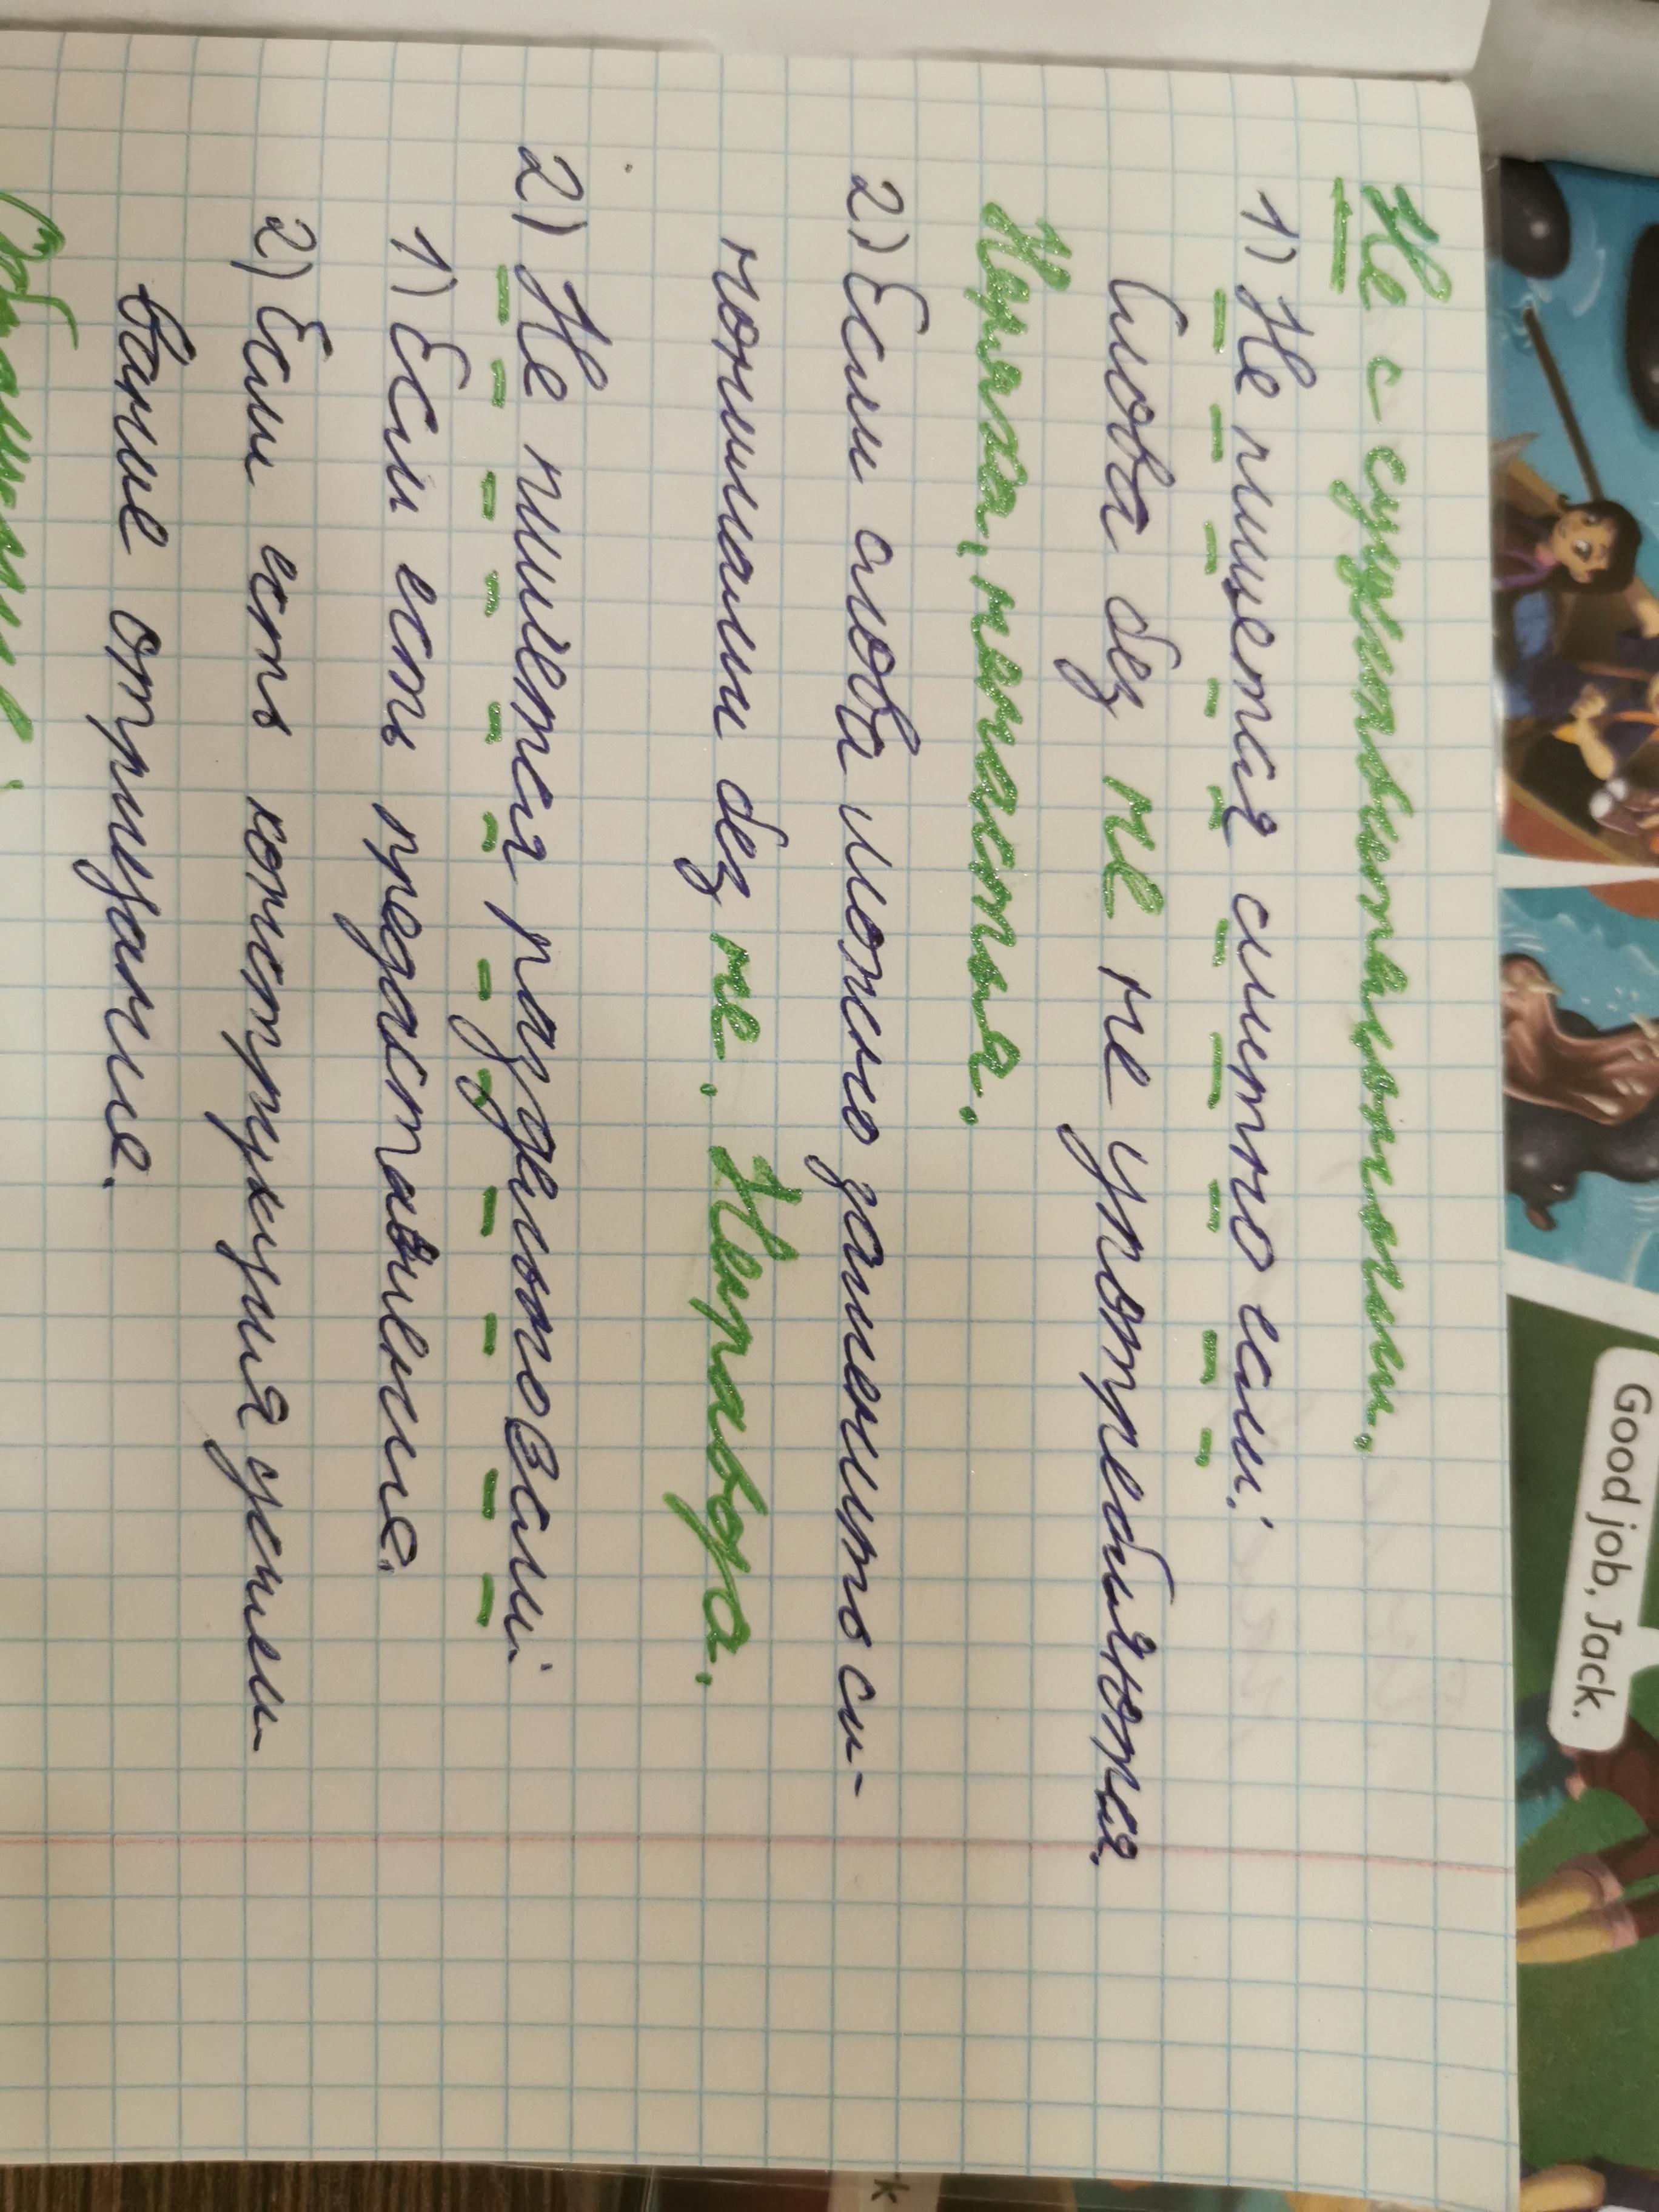 Не с существительными.
1) Не пишется слитно если:
Слова без не не употребляются.
Неряха, ненастья.
2) Если слова можно заменить си-
нонимами без не. Неправда.
2) Не пишется раздельно если:
1) Если есть предаставление.
2) Если есть конструкция усили-
вание отрицание.
Good job, Jack.